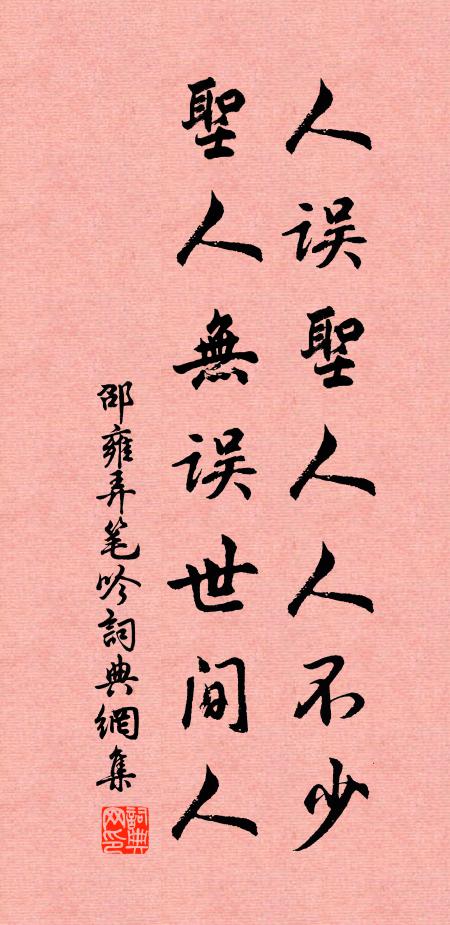 人误聖人人不少
聖人無误世间人
邵雍弄笔吟詞典網集
詞典网印